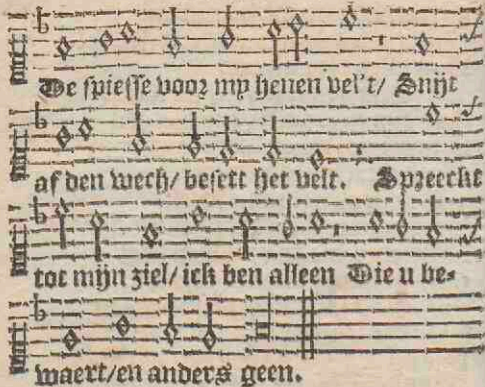 De spiesse voor my henen vel't/ Snijt
af den wech/ besett het velt. Spreeckt
tot mijn ziel/ ick ben alleen Die u be-
waert/en anders geen.